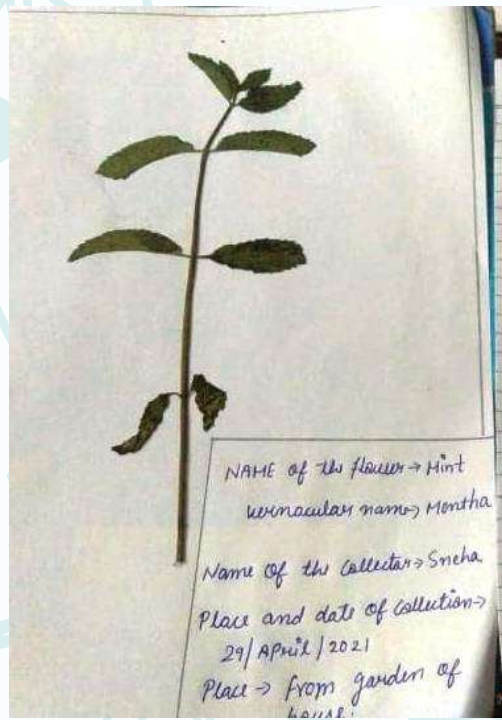 NAME of the flower → Mint
vernacular name → Mentha
Name Of the collector → Sneha
Place and date of collection →
29/April/2021
Place → from garden of
house.